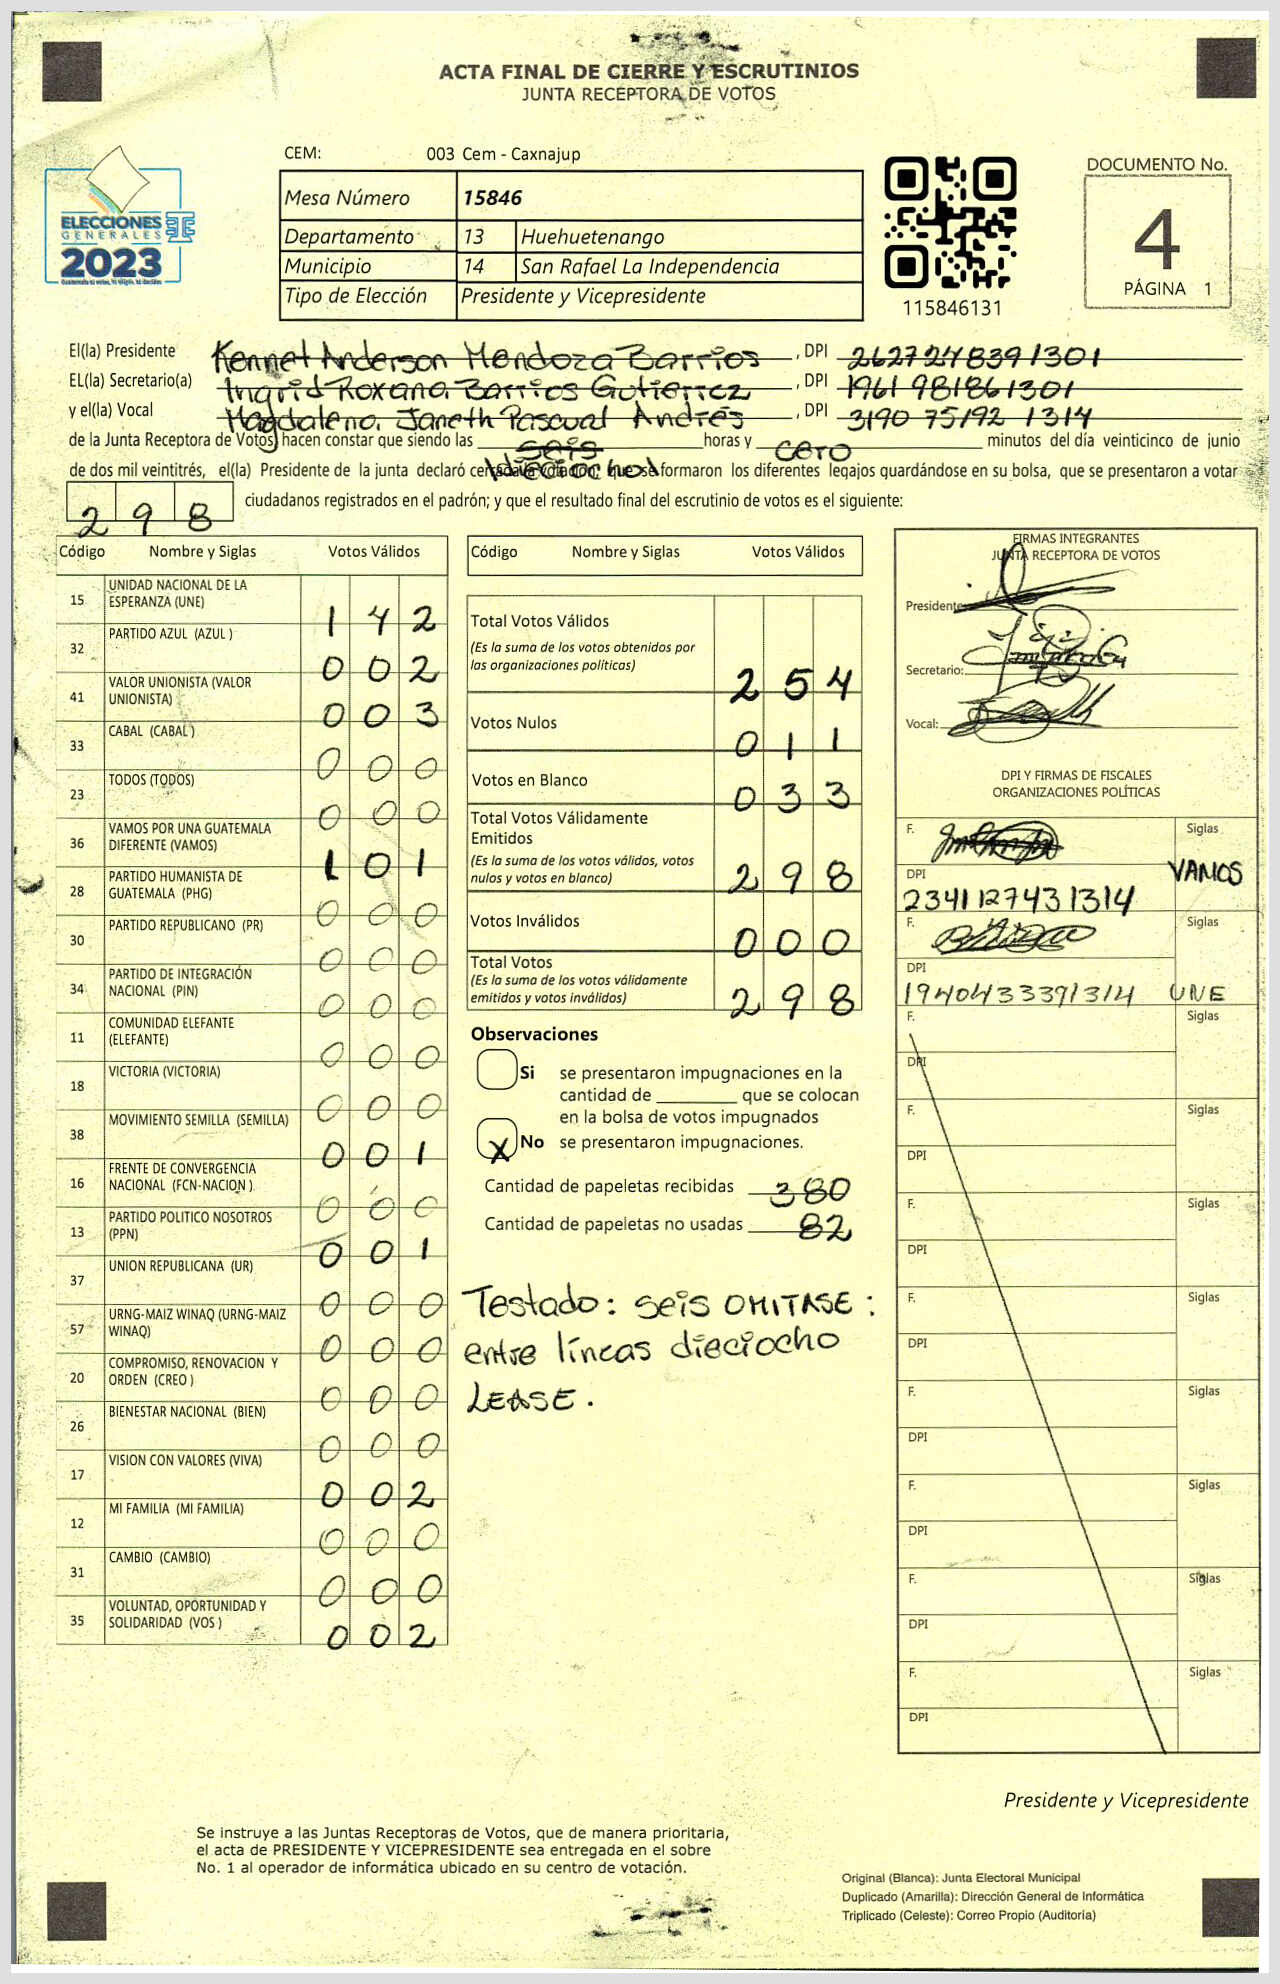 ACTA FINAL DE CIERRE Y ESCRUTINIOS
JUNTA RECEPTORA DE VOTOS
CEM: 003 Cem - Caxnajup
ELECCIONES
GENERALES
2023
Mesa Número 15846
Departamento 13 Huehuetenango
Municipio 14 San Rafael La Independencia
Tipo de Elección Presidente y Vicepresidente
115846131
DOCUMENTO No.
4
PÁGINA 1
El(la) Presidente Kennet Anderson Mendoza Barrios, DPI 2627248391301
EL(la) Secretario(a) Ingrid Roxana Barrios Gutierrez, DPI 1961 981861301
y el(la) Vocal Magdalena Janeth Pascual Andrés, DPI 3190 75192 1314
de la Junta Receptora de Votos, hacen constar que siendo las seis horas y cero minutos del día veinticinco de junio
dieciocho
de dos mil veintitrés, el(la) Presidente de la junta declaró cerrada la votación, que se formaron los diferentes legajos quardándose en su bolsa, que se presentaron a votar
298 ciudadanos registrados en el padrón; y que el resultado final del escrutinio de votos es el siguiente:
Código Nombre y Siglas Votos Válidos
15 UNIDAD NACIONAL DE LA ESPERANZA (UNE) 142
32 PARTIDO AZUL (AZUL ) 002
41 VALOR UNIONISTA (VALOR UNIONISTA) 003
33 CABAL (CABAL ) 000
23 TODOS (TODOS) 000
36 VAMOS POR UNA GUATEMALA DIFERENTE (VAMOS) 101
28 PARTIDO HUMANISTA DE GUATEMALA (PHG) 000
30 PARTIDO REPUBLICANO (PR) 000
34 PARTIDO DE INTEGRACIÓN NACIONAL (PIN) 000
11 COMUNIDAD ELEFANTE (ELEFANTE) 000
18 VICTORIA (VICTORIA) 000
38 MOVIMIENTO SEMILLA (SEMILLA) 001
16 FRENTE DE CONVERGENCIA NACIONAL (FCN-NACION ) 000
13 PARTIDO POLITICO NOSOTROS (PPN) 001
37 UNION REPUBLICANA (UR) 000
57 URNG-MAIZ WINAQ (URNG-MAIZ WINAQ) 000
20 COMPROMISO, RENOVACION Y ORDEN (CREO ) 000
26 BIENESTAR NACIONAL (BIEN) 000
17 VISION CON VALORES (VIVA) 002
12 MI FAMILIA (MI FAMILIA) 000
31 CAMBIO (CAMBIO) 000
35 VOLUNTAD, OPORTUNIDAD Y SOLIDARIDAD (VOS ) 002
Código Nombre y Siglas Votos Válidos
Total Votos Válidos 254
(Es la suma de los votos obtenidos por
las organizaciones políticas)
Votos Nulos 011
Votos en Blanco 033
Total Votos Válidamente
Emitidos 298
(Es la suma de los votos válidos, votos
nulos y votos en blanco)
Votos Inválidos 000
Total Votos 298
(Es la suma de los votos válidamente
emitidos y votos inválidos)
Observaciones
Si se presentaron impugnaciones en la
cantidad de que se colocan
en la bolsa de votos impugnados
X No se presentaron impugnaciones.
Cantidad de papeletas recibidas 380
Cantidad de papeletas no usadas 82
Testado: seis OMITASE:
entre líneas dieciocho
LEASE.
FIRMAS INTEGRANTES
JUNTA RECEPTORA DE VOTOS
Presidente:
Secretario:
Vocal:
DPI Y FIRMAS DE FISCALES
ORGANIZACIONES POLÍTICAS
F. Siglas
DPI 2341127431314 VAMOS
F. Siglas
DPI 1940433391314 UNE
F. Siglas
DPI
F. Siglas
DPI
F. Siglas
DPI
F. Siglas
DPI
F. Siglas
DPI
F. Siglas
DPI
F. Siglas
DPI
F. Siglas
DPI
Presidente y Vicepresidente
Se instruye a las Juntas Receptoras de Votos, que de manera prioritaria,
el acta de PRESIDENTE Y VICEPRESIDENTE sea entregada en el sobre
No. 1 al operador de informática ubicado en su centro de votación.
Original (Blanca): Junta Electoral Municipal
Duplicado (Amarilla): Dirección General de Informática
Triplicado (Celeste): Correo Propio (Auditoría)